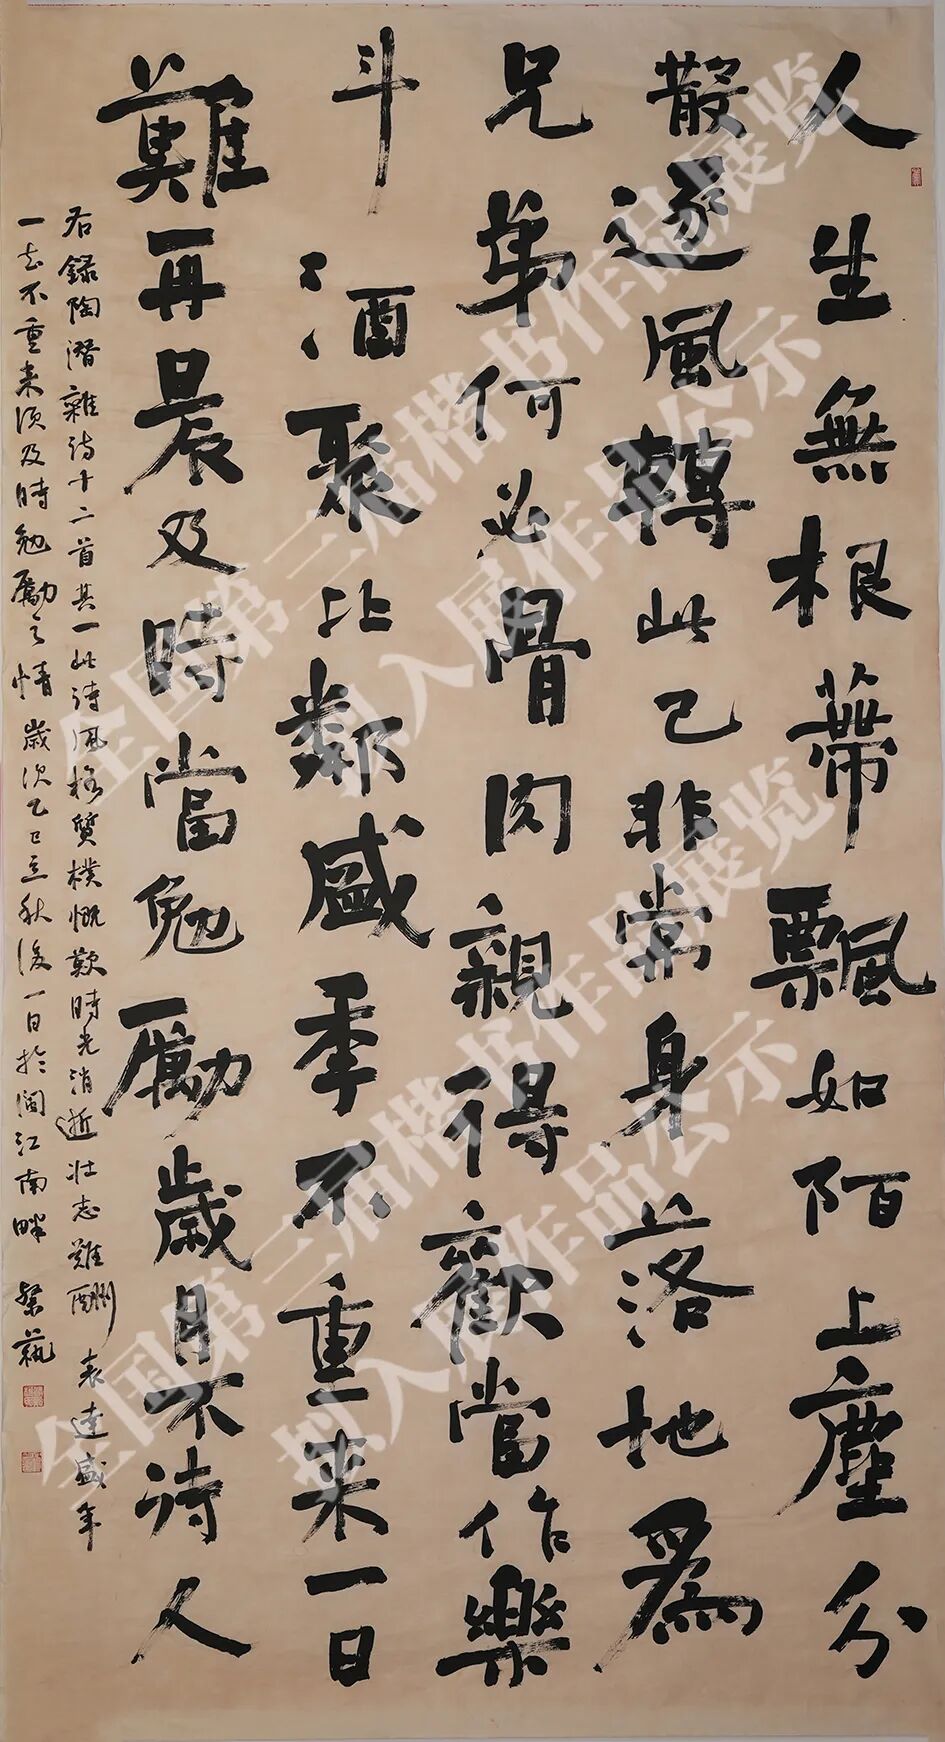 人生無根蒂飄如陌上塵分
散逐風轉此已非常身落地爲
兄弟何必骨肉親得歡當作樂
斗酒聚比鄰盛秊不重来一日
難再晨及時當勉勵歲月不待人
右録陶潛雜詩十二首其一此詩風格質樸慨歎時光消逝壯志難酬表達盛年
一去不重来須及時勉勵之情歲次乙巳立秋後一日於江南畔
全国第三届楷书作品展览
拟入展作品公示
全国第三届楷书作品展览
拟入展作品公示